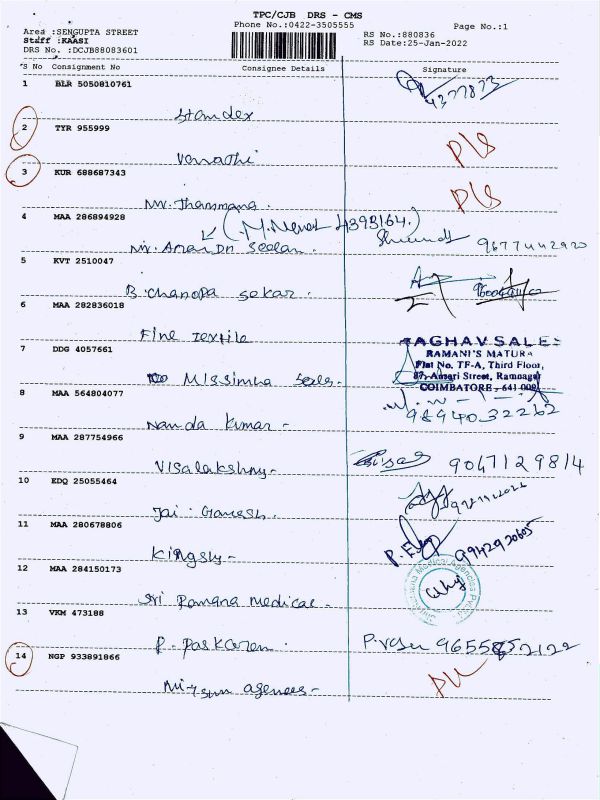 TPC/CJB DRS - CMS
Phone No.:0422-3505555
Page No.:1
Area :SENGUPTA STREET
Staff :KAASI
DRS No. :DCJB88083601
RS No.:880836
RS Date:25-Jan-2022
S No Consignment No Consignee Details Signature
1 BLR 5050810761
4377873
Standex
2 TYR 955999
3 KUR 688687343
Mr. Thammana.
4 MAA 286894928
4393164.)
Mr. Anandn Seelan.
9677442920
5 KVT 2510047
B. Chandra Sekar.
6 MAA 282836018
Fine Textile
7 DDG 4057661
RAGHAV SALES
RAMANI'S MATURA
Flat No. TF-A, Third Floor,
87, Ansari Street, Ramnagar
COIMBATORE - 641 009
Missimha Seles.
8 MAA 564804077
98940 32262
Nanda Kumar -
9 MAA 287754966
9047129814
Visalakshmy-
10 EDQ 25055464
Jai Ganesh.
11 MAA 280678806
9942920605
Kingsly-
12 MAA 284150173
Sri Ramana Medical -
13 VKM 473188
P. Paskaren.
14 NGP 933891866
agences-